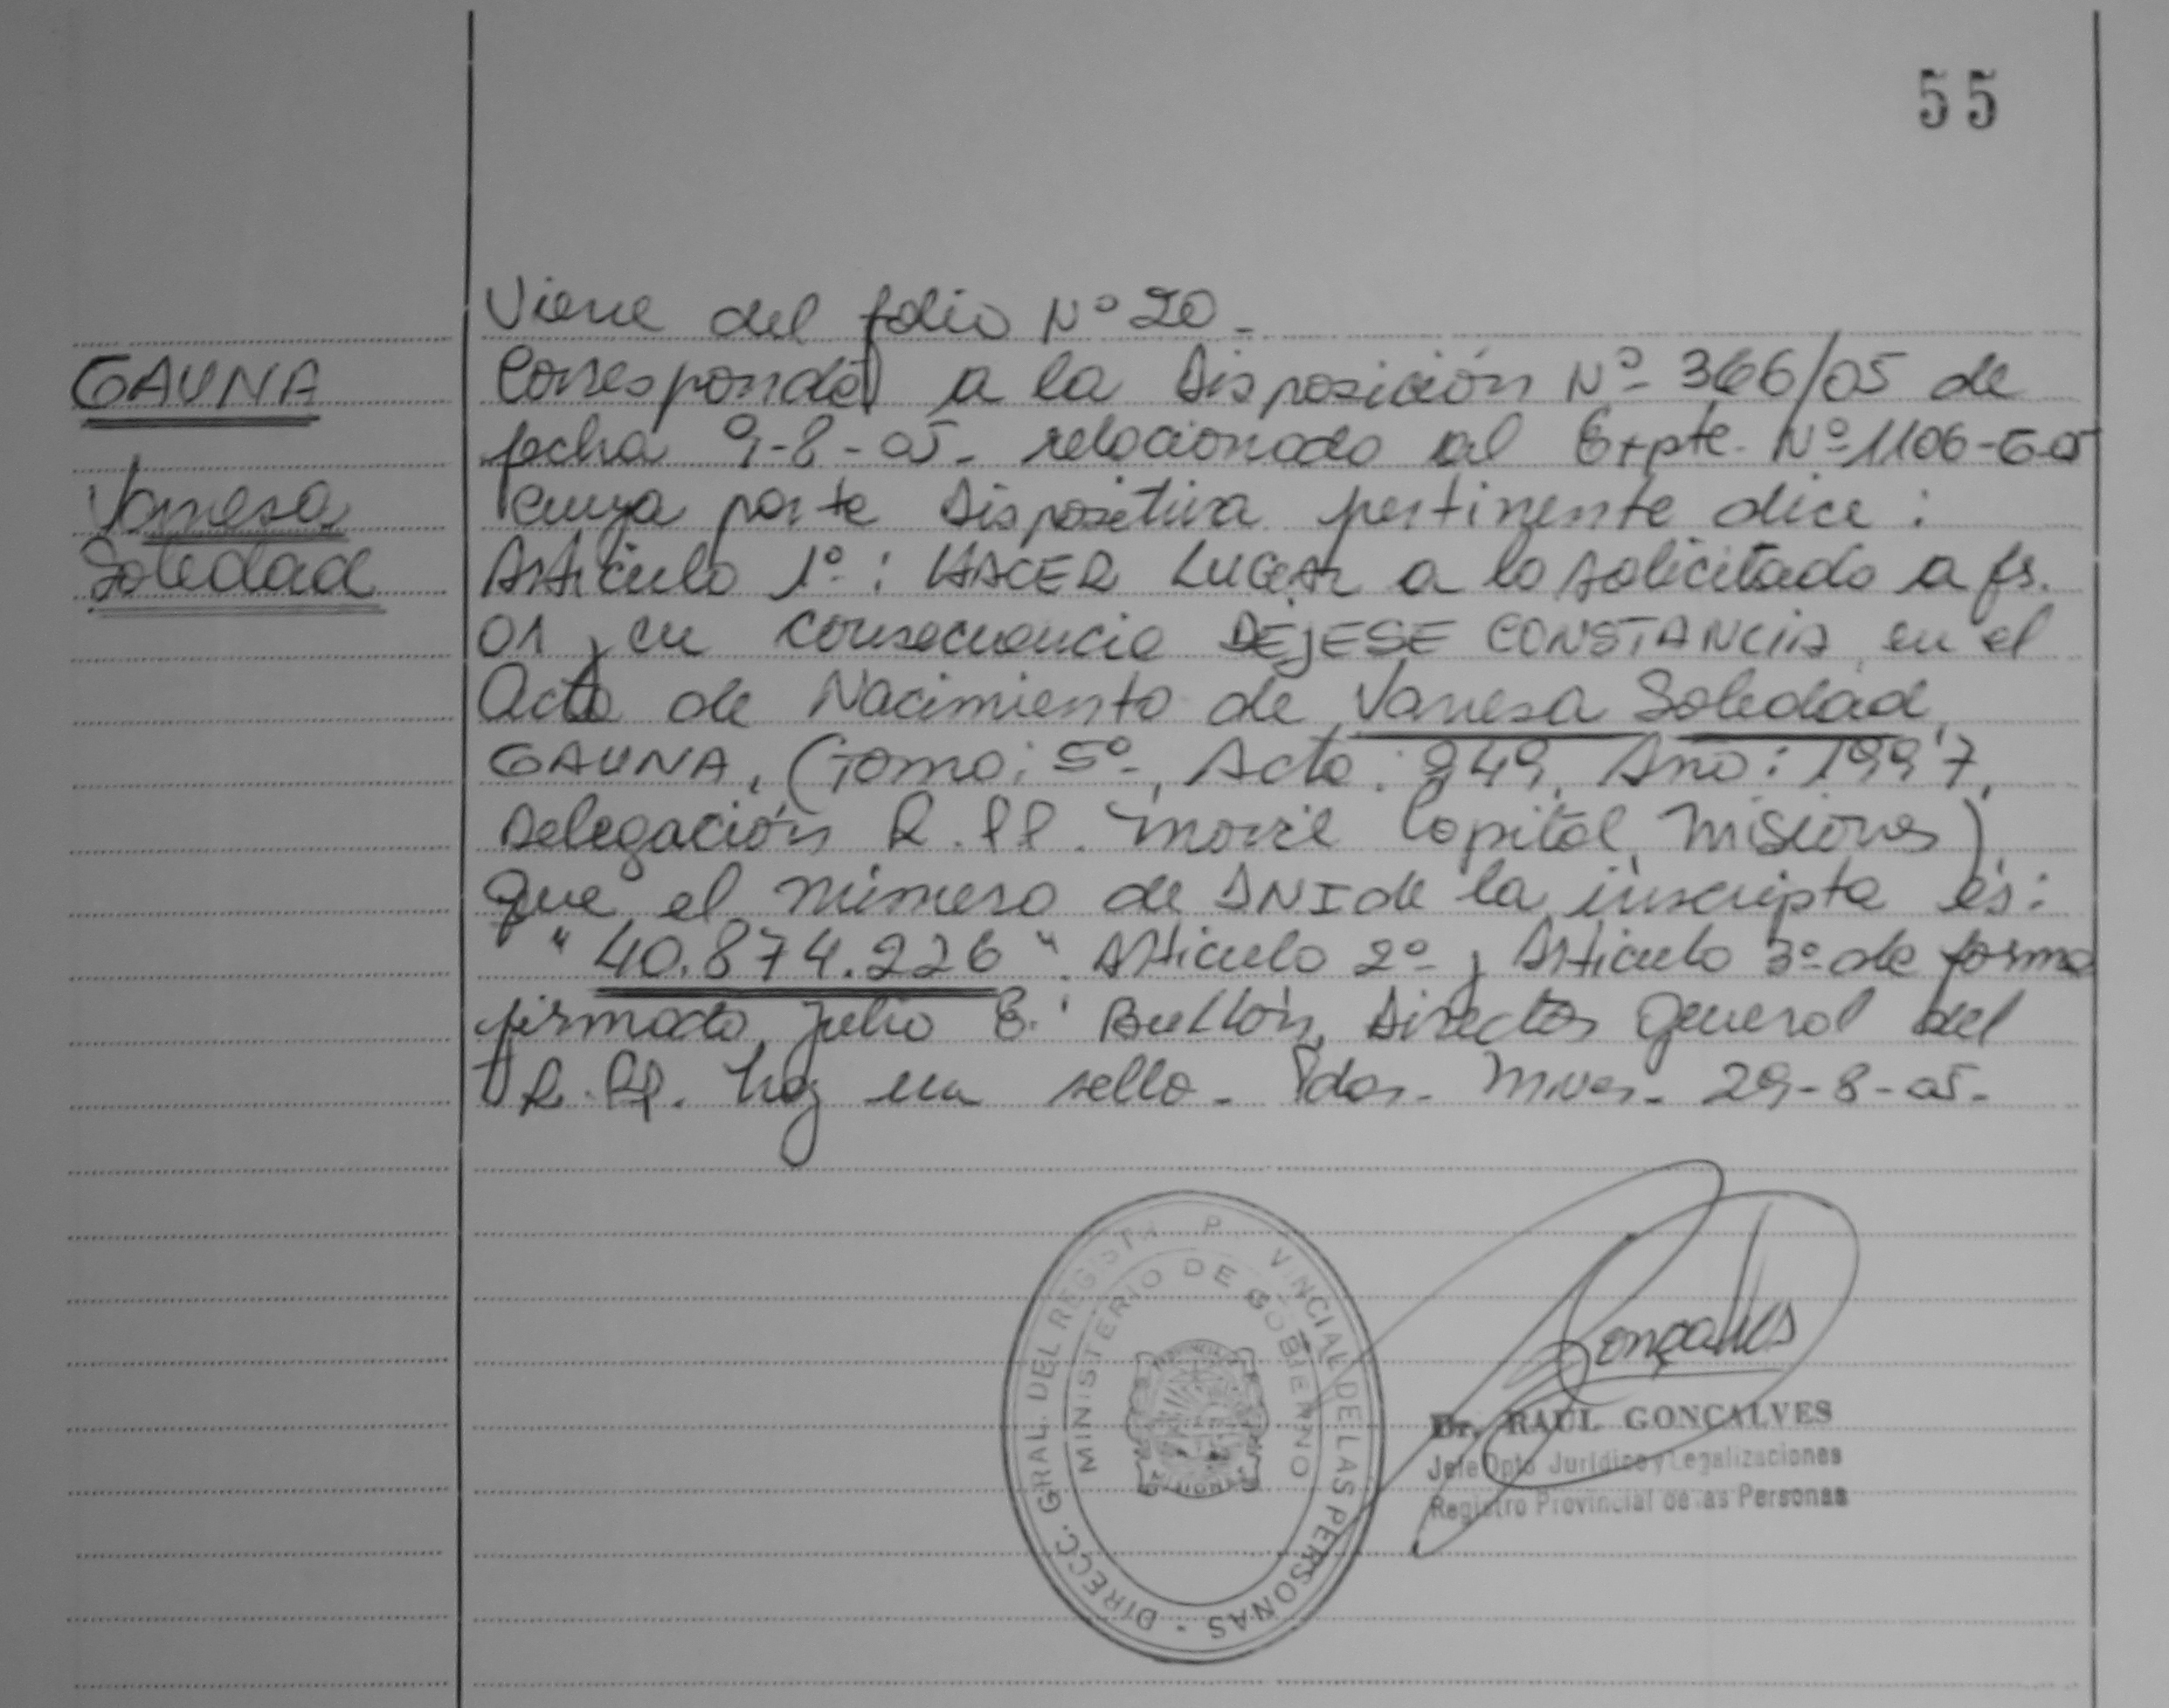 55
Viene del folio Nº 20.-
GAUNA
Vanesa
Soledad
Corresponde a la Disposición Nº 366/05 de
fecha 9-8-05- relacionado al Expte. Nº 1106-G-05
cuya parte Dispositiva pertinente dice:
Artículo 1º: HACER LUGAR a lo solicitado a fs.
01 y en consecuencia DÉJESE CONSTANCIA, en el
Acta de Nacimiento de Vanesa Soledad
GAUNA, (Tomo: 5º, Acta: 949, Año: 1997,
Delegación R.PP. Movil Capital, Misiones),
que el número de DNI de la inscripta es:
"40.874.226". Artículo 2º y Artículo 3º de forma
firmado Julio E. Bullón, Director General del
R.PP. hay un sello- Pdas- Mnes- 29-8-05-
DIRECC. GRAL. DEL REGISTR P VINCIAL DE LAS PERSONAS -
MINISTERIO DE GOBIERNO
Gonçalves
Dr. RAUL GONCALVES
Jefe Dpto Jurídico y Legalizaciones
Registro Provincial de as Personas